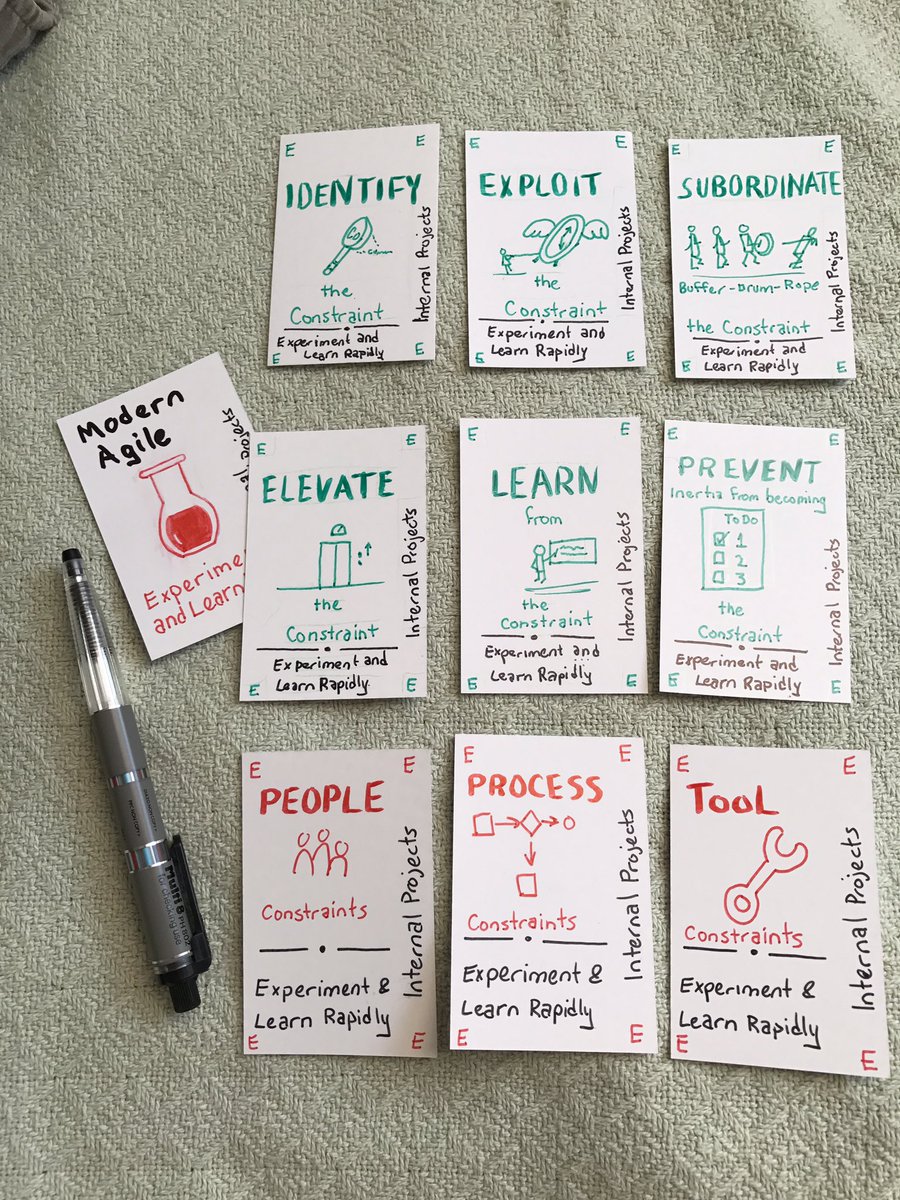 E E
IDENTIFY
the
Constraint
Experiment and
Learn Rapidly
Internal Projects
E E
E E
EXPLOIT
the
Constraint
Experiment and
Learn Rapidly
Internal Projects
E E
E E
SUBORDINATE
Buffer-Drum-Rope
the Constraint
Experiment and
Learn Rapidly
Internal Projects
E E
Modern
Agile
Experime
and Learn
E E
ELEVATE
the
Constraint
Experiment and
Learn Rapidly
Internal Projects
E E
E E
LEARN
from
the
Constraint
Experiment and
Learn Rapidly
Internal Projects
E E
E E
PREVENT
Inertia from becoming
To Do
1
2
3
the
Constraint
Experiment and
Learn Rapidly
Internal Projects
E E
E E
PEOPLE
Constraints
Experiment &
Learn Rapidly
Internal Projects
E E
E E
PROCESS
Constraints
Experiment &
Learn Rapidly
Internal Projects
E E
E E
TOOL
Constraints
Experiment &
Learn Rapidly
Internal Projects
E E
Multi 8
for checking pen